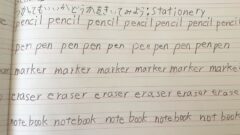 かいてもいいかどうかをきいてみよう:Stationery
pencil pencil pencil pencil pencil pencil pencil
pen pen pen pen pen pen pen penpen
marker marker marker marker marker marker
eraser eraser eraser eraser eraser erase
notebook notebook notebook notebook notebook